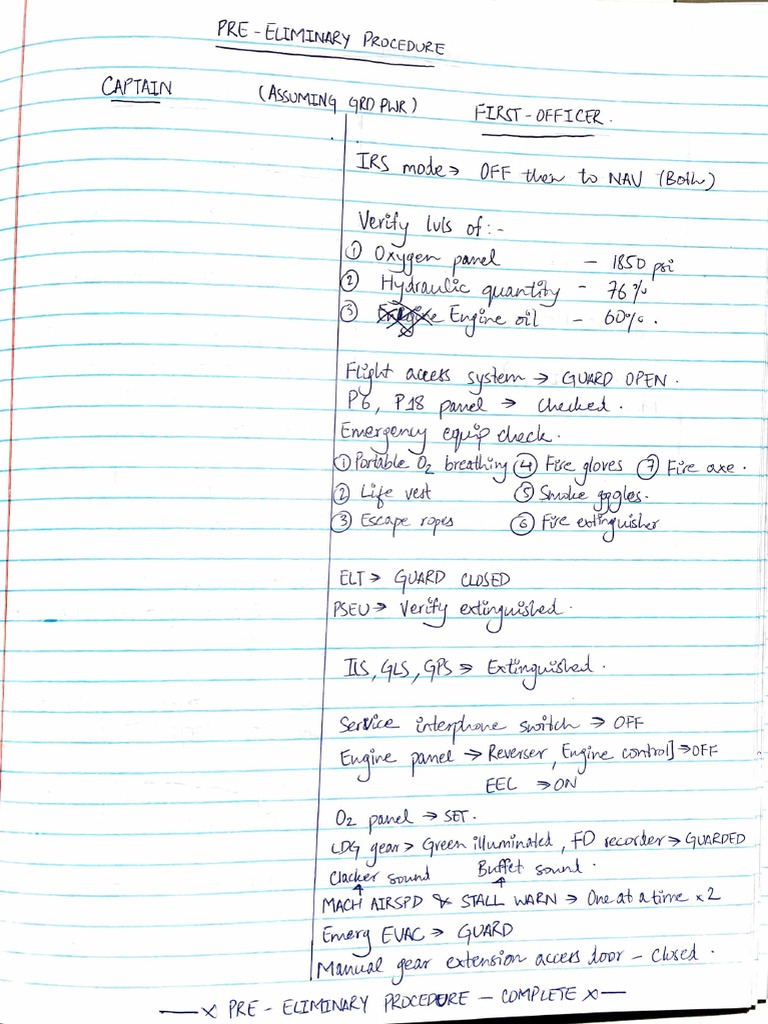 PRE-ELIMINARY PROCEDURE
CAPTAIN (ASSUMING GRD PWR) FIRST-OFFICER.
IRS mode → OFF then to NAV (Both)
Verify lvls of:-
① Oxygen panel - 1850 psi
② Hydraulic quantity - 76%
③ Engine oil - 60%.
Flight access system → GUARD OPEN.
P6, P18 panel → checked.
Emergency equip check.
① Portable O2 breathing ④ Fire gloves ⑦ Fire axe.
② Life vest ⑤ Smoke ggles.
③ Escape ropes ⑥ Fire extinguisher
ELT → GUARD CLOSED
PSEU → Verify extinguished.
ILS, GLS, GPS → Extinguished.
Service interphone switch → OFF
Engine panel → Reverser, Engine control] → OFF
EEC → ON
O2 panel → SET.
LDG gear → Green illuminated, FD recorder → GUARDED
Clacker sound Buffet sound.
↑ ↑
MACH AIRSPD & STALL WARN → One at a time x2
Emerg EVAC → GUARD
Manual gear extension access door - closed.
—x PRE-ELIMINARY PROCEDURE - COMPLETE x—